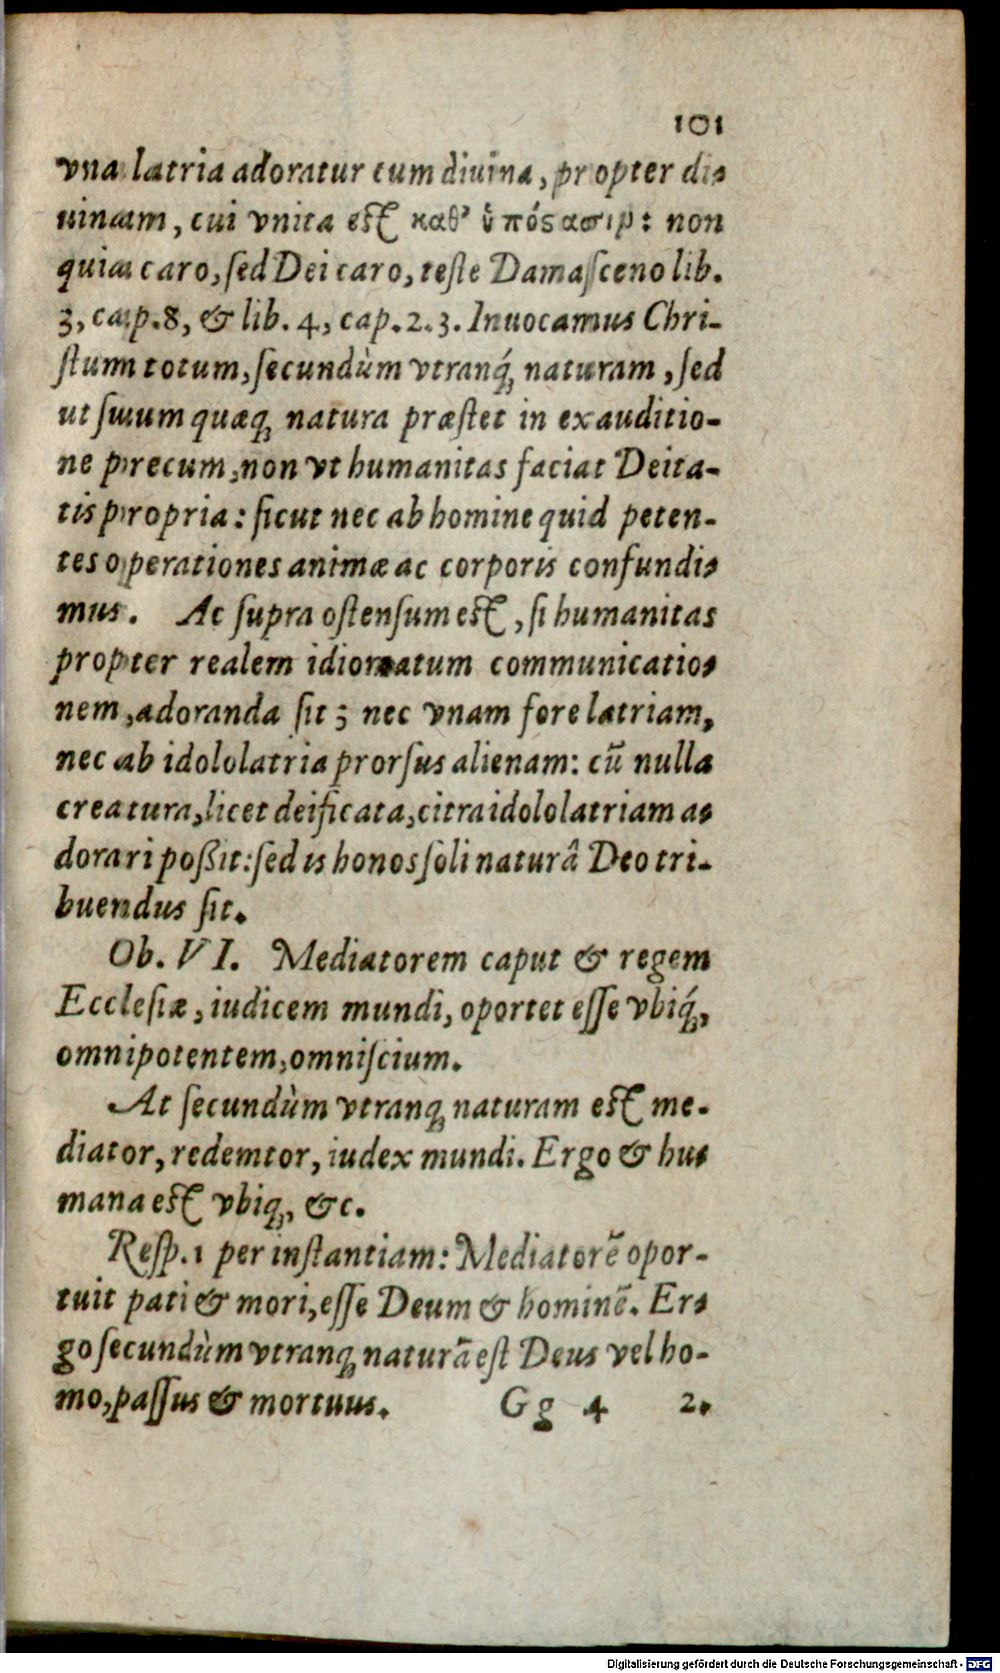 101
vna latria adoratur cum diuina, propter di-
uinam, cui vnita est καθ’ ὑπόςασιν: non
quia caro, sed Dei caro, teste Damasceno lib.
3, cap. 8, & lib. 4, cap. 2. 3. Inuocamus Chri-
stum totum, secundùm vtranq́; naturam, sed
ut suum quæq; natura præstet in exauditio-
ne precum, non vt humanitas faciat Deita-
tis propria: sicut nec ab homine quid peten-
tes operationes animæ ac corporis confundi-
mus. Ac supra ostensum est, si humanitas
propter realem idiomatum communicatio-
nem, adoranda sit; nec vnam fore latriam,
nec ab idololatria prorsus alienam: cũ nulla
creatura, licet deificata, citra idololatriam a-
dorari poßit: sed is honos soli naturâ Deo tri-
buendus sit.
Ob. VI. Mediatorem caput & regem
Ecclesiæ, iudicem mundi, oportet esse vbiq́;,
omnipotentem, omniscium.
At secundùm vtranq; naturam est me-
diator, redemtor, iudex mundi. Ergo & hu-
mana est vbiq;, &c.
Resp. 1 per instantiam: Mediatorẽ opor-
tuit pati & mori, esse Deum & hominẽ. Er-
go secundùm vtranq; naturã est Deus vel ho-
mo, passus & mortuus. Gg 4 2.
Digitalisierung gefördert durch die Deutsche Forschungsgemeinschaft - DFG